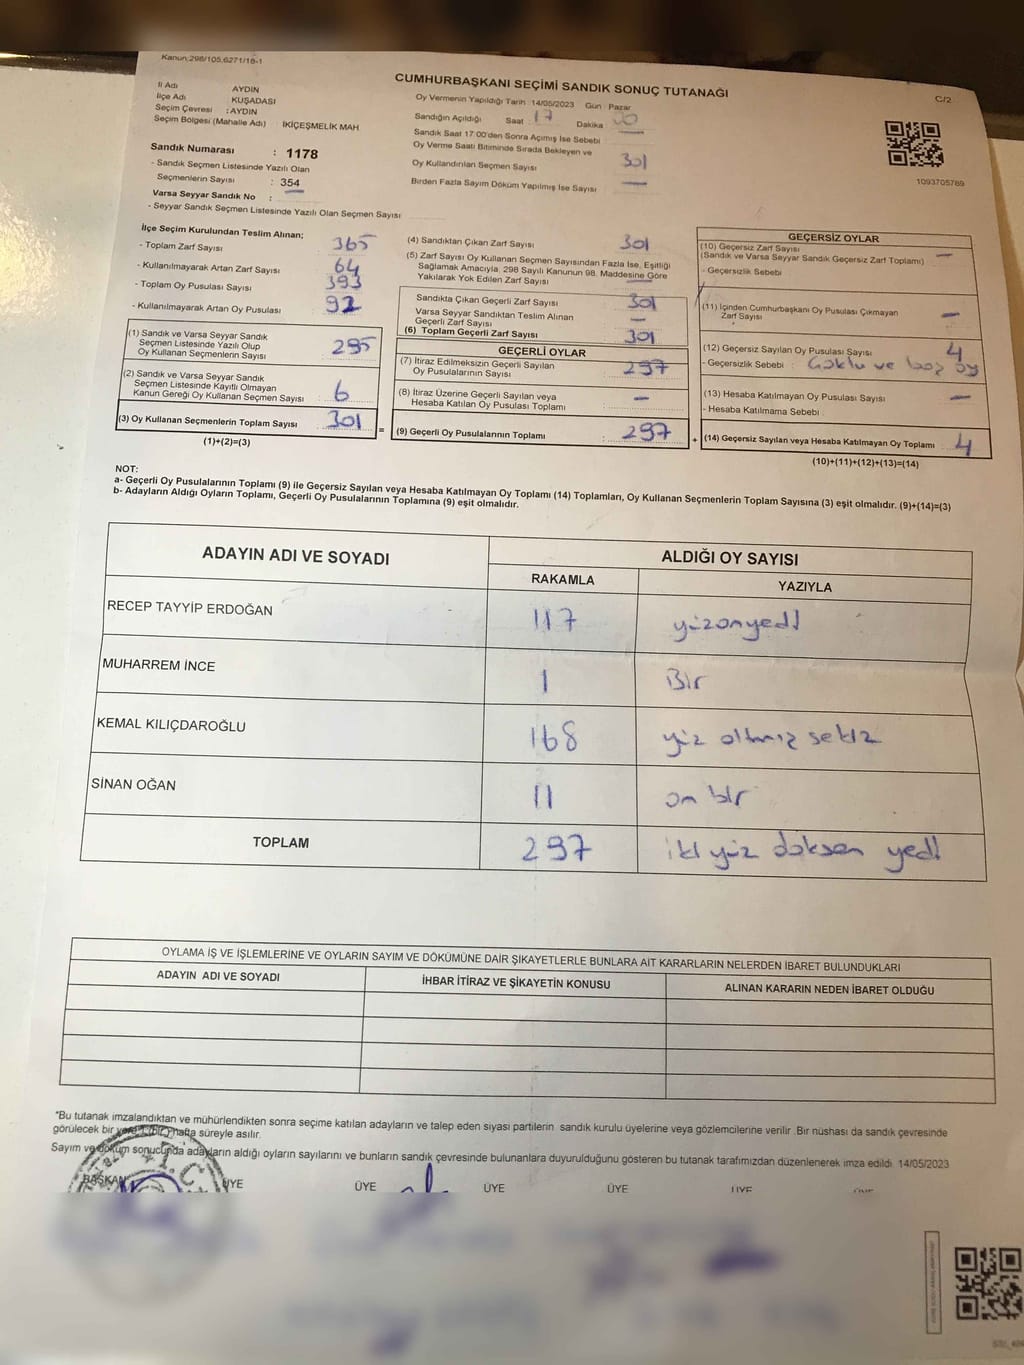 Kanun:298/105,6271/18-1
CUMHURBAŞKANI SEÇİMİ SANDIK SONUÇ TUTANAĞI
C/2
İl Adı AYDIN
İlçe Adı KUŞADASI
Seçim Çevresi : AYDIN
Seçim Bölgesi (Mahalle Adı) İKİÇEŞMELİK MAH.
Sandık Numarası : 1178
- Sandık Seçmen Listesinde Yazılı Olan
Seçmenlerin Sayısı : 354
Varsa Seyyar Sandık No :
- Seyyar Sandık Seçmen Listesinde Yazılı Olan Seçmen Sayısı
Oy Vermenin Yapıldığı Tarih : 14/05/2023 Gün : Pazar
Sandığın Açıldığı Saat : 17 Dakika 00
Sandık Saat 17:00'den Sonra Açımış İse Sebebi —
Oy Verme Saati Bitiminde Sırada Bekleyen ve
Oy Kullandırılan Seçmen Sayısı 301
Birden Fazla Sayım Döküm Yapılmış İse Sayısı —
1093705789
İlçe Seçim Kurulundan Teslim Alınan;
- Toplam Zarf Sayısı 365
- Kullanılmayarak Artan Zarf Sayısı 64
- Toplam Oy Pusulası Sayısı 393
- Kullanılmayarak Artan Oy Pusulası 92
(1) Sandık ve Varsa Seyyar Sandık
Seçmen Listesinde Yazılı Olup
Oy Kullanan Seçmenlerin Sayısı 295
(2) Sandık ve Varsa Seyyar Sandık
Seçmen Listesinde Kayıtlı Olmayan
Kanun Gereği Oy Kullanan Seçmen Sayısı 6
(3) Oy Kullanan Seçmenlerin Toplam Sayısı 301 =
(1)+(2)=(3)
(4) Sandıktan Çıkan Zarf Sayısı 301
(5) Zarf Sayısı Oy Kullanan Seçmen Sayısından Fazla İse, Eşitliği
Sağlamak Amacıyla, 298 Sayılı Kanunun 98. Maddesine Göre
Yakılarak Yok Edilen Zarf Sayısı —
Sandıkta Çıkan Geçerli Zarf Sayısı 301
Varsa Seyyar Sandıktan Teslim Alınan
Geçerli Zarf Sayısı —
(6) Toplam Geçerli Zarf Sayısı 301
GEÇERLİ OYLAR
(7) İtiraz Edilmeksizin Geçerli Sayılan
Oy Pusulalarının Sayısı : 297
(8) İtiraz Üzerine Geçerli Sayılan veya
Hesaba Katılan Oy Pusulası Toplamı : —
(9) Geçerli Oy Pusulalarının Toplamı : 297 +
GEÇERSİZ OYLAR
(10) Geçersiz Zarf Sayısı
(Sandık ve Varsa Seyyar Sandık Geçersiz Zarf Toplamı) —
- Geçersizlik Sebebi
(11) İçinden Cumhurbaşkanı Oy Pusulası Çıkmayan
Zarf Sayısı —
(12) Geçersiz Sayılan Oy Pusulası Sayısı 4
- Geçersizlik Sebebi : Çoklu ve boş oy
(13) Hesaba Katılmayan Oy Pusulası Sayısı —
- Hesaba Katılmama Sebebi
(14) Geçersiz Sayılan veya Hesaba Katılmayan Oy Toplamı 4
(10)+(11)+(12)+(13)=(14)
NOT:
a- Geçerli Oy Pusulalarının Toplamı (9) ile Geçersiz Sayılan veya Hesaba Katılmayan Oy Toplamı (14) Toplamları, Oy Kullanan Seçmenlerin Toplam Sayısına (3) eşit olmalıdır. (9)+(14)=(3)
b- Adayların Aldığı Oyların Toplamı, Geçerli Oy Pusulalarının Toplamına (9) eşit olmalıdır.
ADAYIN ADI VE SOYADI ALDIĞI OY SAYISI
RAKAMLA YAZIYLA
RECEP TAYYİP ERDOĞAN 117 yüzonyedi
MUHARREM İNCE 1 Bir
KEMAL KILIÇDAROĞLU 168 yüz altmış sekiz
SİNAN OĞAN 11 on bir
TOPLAM 297 iki yüz doksan yedi
OYLAMA İŞ VE İŞLEMLERİNE VE OYLARIN SAYIM VE DÖKÜMÜNE DAİR ŞİKAYETLERLE BUNLARA AİT KARARLARIN NELERDEN İBARET BULUNDUKLARI
ADAYIN ADI VE SOYADI İHBAR İTİRAZ VE ŞİKAYETİN KONUSU ALINAN KARARIN NEDEN İBARET OLDUĞU
*Bu tutanak imzalandıktan ve mühürlendikten sonra seçime katılan adayların ve talep eden siyasi partilerin sandık kurulu üyelerine veya gözlemcilerine verilir. Bir nüshası da sandık çevresinde
görülecek bir yere 1 (bir) hafta süreyle asılır.
Sayım ve döküm sonucunda adayların aldığı oyların sayılarını ve bunların sandık çevresinde bulunanlara duyurulduğunu gösteren bu tutanak tarafımızdan düzenlenerek imza edildi. 14/05/2023
BAŞKAN ÜYE ÜYE ÜYE ÜYE ÜYE ÜYE
T.C.